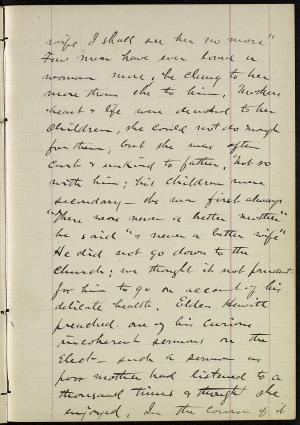 wife I shall see her no more"
Few men have ever loved a
woman more; he clung to her
more than she to him. Mothers
heart & life were devoted to her
children, she could not do enough
for them, but she was often
curt & unkind to father. Not so
with him; his children were
secondary – she was first always
"There was never a better mother"
he said "& never a better wife"
He did not go down to the
Church; we thought it not prudent
for him to go on account of his
delicate health. Elder Hewitt
preached one of his curious
incoherent sermons on the
Elect – such a sermon as
poor mother had listened to a
thousand times & thought she
enjoyed. In the course of it